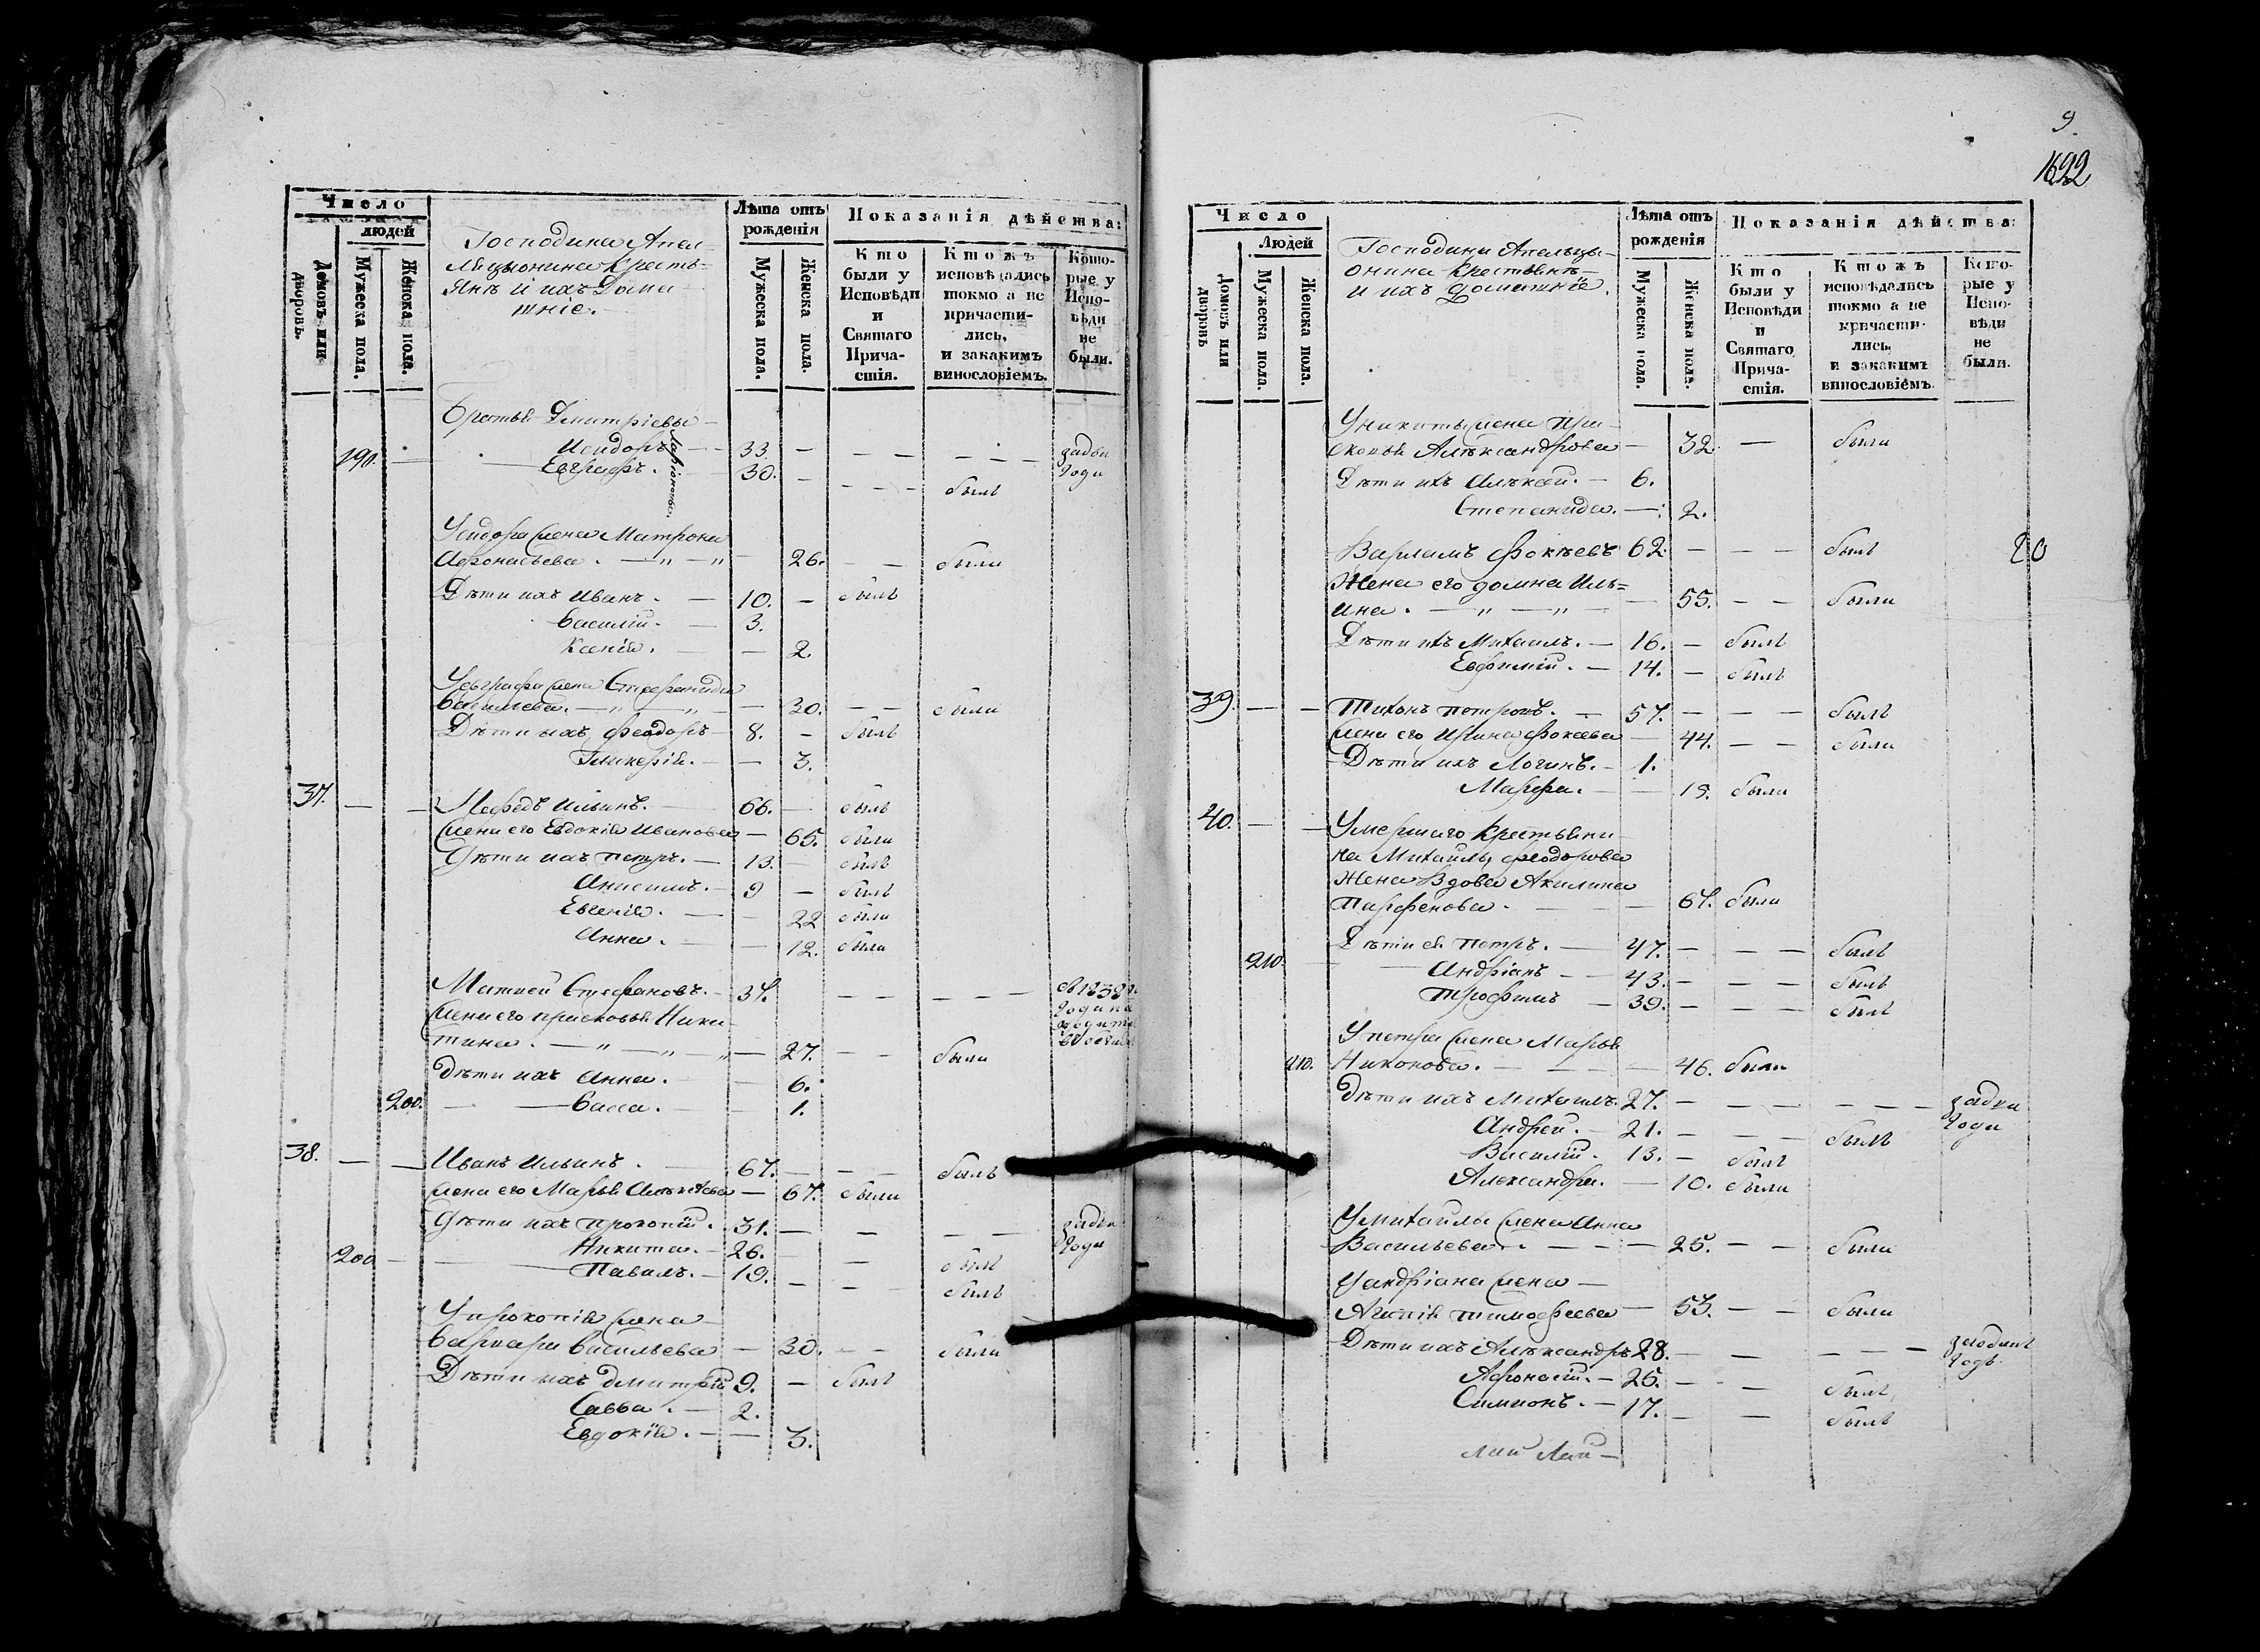 Число
людей
Домовъ или дворовъ.
Мужеска пола.
Женска пола.
Господина Апел-
лицыонина Кресть-
янъ и ихъ Дома
шніе.
Лѣта отъ рожденія
Мужеска пола.
Женска пола.
Показанія дѣйства:
Кто были у Исповѣди и Святаго Прича-стія.
Ктожъ исповѣдались токмо а не причасти-лись, и закакимъ винословіемъ.
Кото-рые у Испо-вѣди не были.
Братья Дмитріевы
Исидоръ 33. задва
190. Евграфъ. 30. былъ года
Ларіоновы.
Уисидора жена Матрона
Афонасьева. 26. была
Дѣти ихъ Иванъ. 10. былъ
Василій. 3.
Ксенія. 2.
Уевграфа жена Стефанида
Васильева. 30. была
Дѣти ихъ Феодоръ 8. былъ
Гликерія. 3.
37. Нефедъ Ильинъ. 66. былъ
жена его Евдокія Иванова 65. была
Дѣти ихъ Петръ. 13. былъ
Анисимъ. 9 былъ
Евгенія. 22 была
Анна. 12. была
Матвей Стефановъ. 37.
года
жена его Присковья Ники-
тина. 27. была
Дѣти ихъ Анна. 6.
200. Васса. 1.
38. Иванъ Ильинъ. 67. былъ
жена его Марья Алексѣева 67. была
Дѣти ихъ Прокопій. 31. задва
Никита. 26. былъ года
200 Павилъ. 19. былъ
Упрокопія жена
Варвара Васильева 30. была
Дѣти ихъ Дмитрій 9. былъ
Савва. 2.
Евдокія. 3.
9.
1622
Число
Людей
Домовъ или дворовъ
Мужеска пола.
Женска пола.
Господина Апельцы-
онина Крестьянъ
и ихъ домашніе.
Лѣта отъ рожденія
Мужеска пола.
Женска пола.
Показанія дѣйства:
Кто были у Исповѣди и Святаго Прича-стія.
Ктожъ исповѣдались токмо а не причасти-лись, и закакимъ винословіемъ.
Кото-рые у Испо-вѣди не были.
Уникиты жена Пра-
сковья Александрова 32 была
Дѣти ихъ Алексѣй. 6.
Степанида. 2.
Варламъ Фокѣевъ 62. былъ
20
Жена его Домна Иль-
ина. 55. была
Дѣти ихъ Михаилъ. 16. былъ
Евфимій. 14. былъ
39. Тихонъ Петровъ. 57. былъ
жена его Ирина Фокѣева 44. была
Дѣти ихъ Логинъ. 1.
Марфа. 15. была
40. Умершаго Крестьяни-
на Михайлы Феодорова
Жена Вдова Акилина
Парфенова. 67. была
Дѣти ея Петръ. 47. былъ
210. Андріянъ 43. былъ
Трофимъ 39. былъ
Упетра жена Марья
210. Никонова. 46. была
Дѣти ихъ Михаилъ. 27. задва
Андрей. 21. былъ года
Василій. 13. былъ
Александра. 10. была
Умихайлы жена Анна
Васильева. 25. была
Уандріана жена
Агапія Тимофеева 53. была
Дѣти ихъ Александръ 28. заодинъ
Афонасій. 25. былъ годъ.
Симионъ. 17. былъ